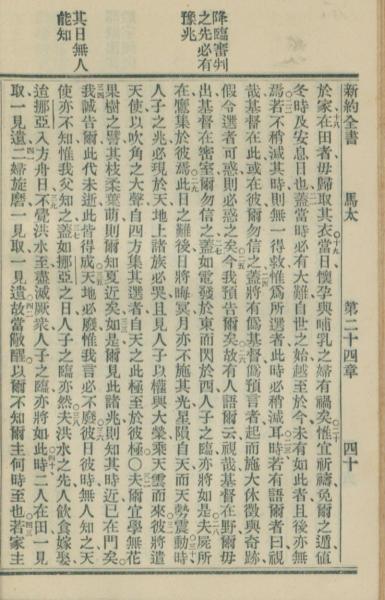 新約全書 馬太 第二十四章 四十
於家在田者毋歸取其衣當日懷孕與哺乳之婦有禍矣惟宜祈禱免爾之遁値
冬時及安息日也蓋當時必有大難自世之始越至於今未有如此者且後亦無
焉若不稍減其時則無一得救惟爲所選者此時必稍減耳時若有語爾者曰視
哉基督在此或在彼爾勿信之蓋將有僞基督僞預言者起而施大休徵與奇跡
假令選者可惑則必惑之矣今我預告爾矣故有人語爾云視哉基督在野爾毋
出基督在密室爾勿信之蓋如電發於東而閃於西人子之臨亦將如是夫屍所
在鷹集於彼焉此日之難後日將晦冥月亦不施其光星隕自天而天勢震動時
人子之兆必現於天地上諸族必哭且見人子以權與大榮乘天雲而來彼將遣
天使以吹角之大聲自四方集其選者自天之此極至於彼極〇夫爾宜學無花
果樹之譬其枝柔葉萌則爾知夏近矣如是爾見此諸兆則知其時近已在門矣
我誠告爾此代未逝此皆得成天地必廢惟我言必不廢彼日彼時無人知之天
使亦不知惟我父知之蓋如挪亞之日人子之臨亦然夫洪水之先人飲食嫁娶
迨挪亞入方舟日不覺洪水至盡滅厥衆人子之臨亦將如此時二人在田一見
取一見遺二婦旋磨一見取一見遺故當儆醒以爾不知爾主何時至也若家主
降臨審判
之先必有
豫兆
其日無人
能知